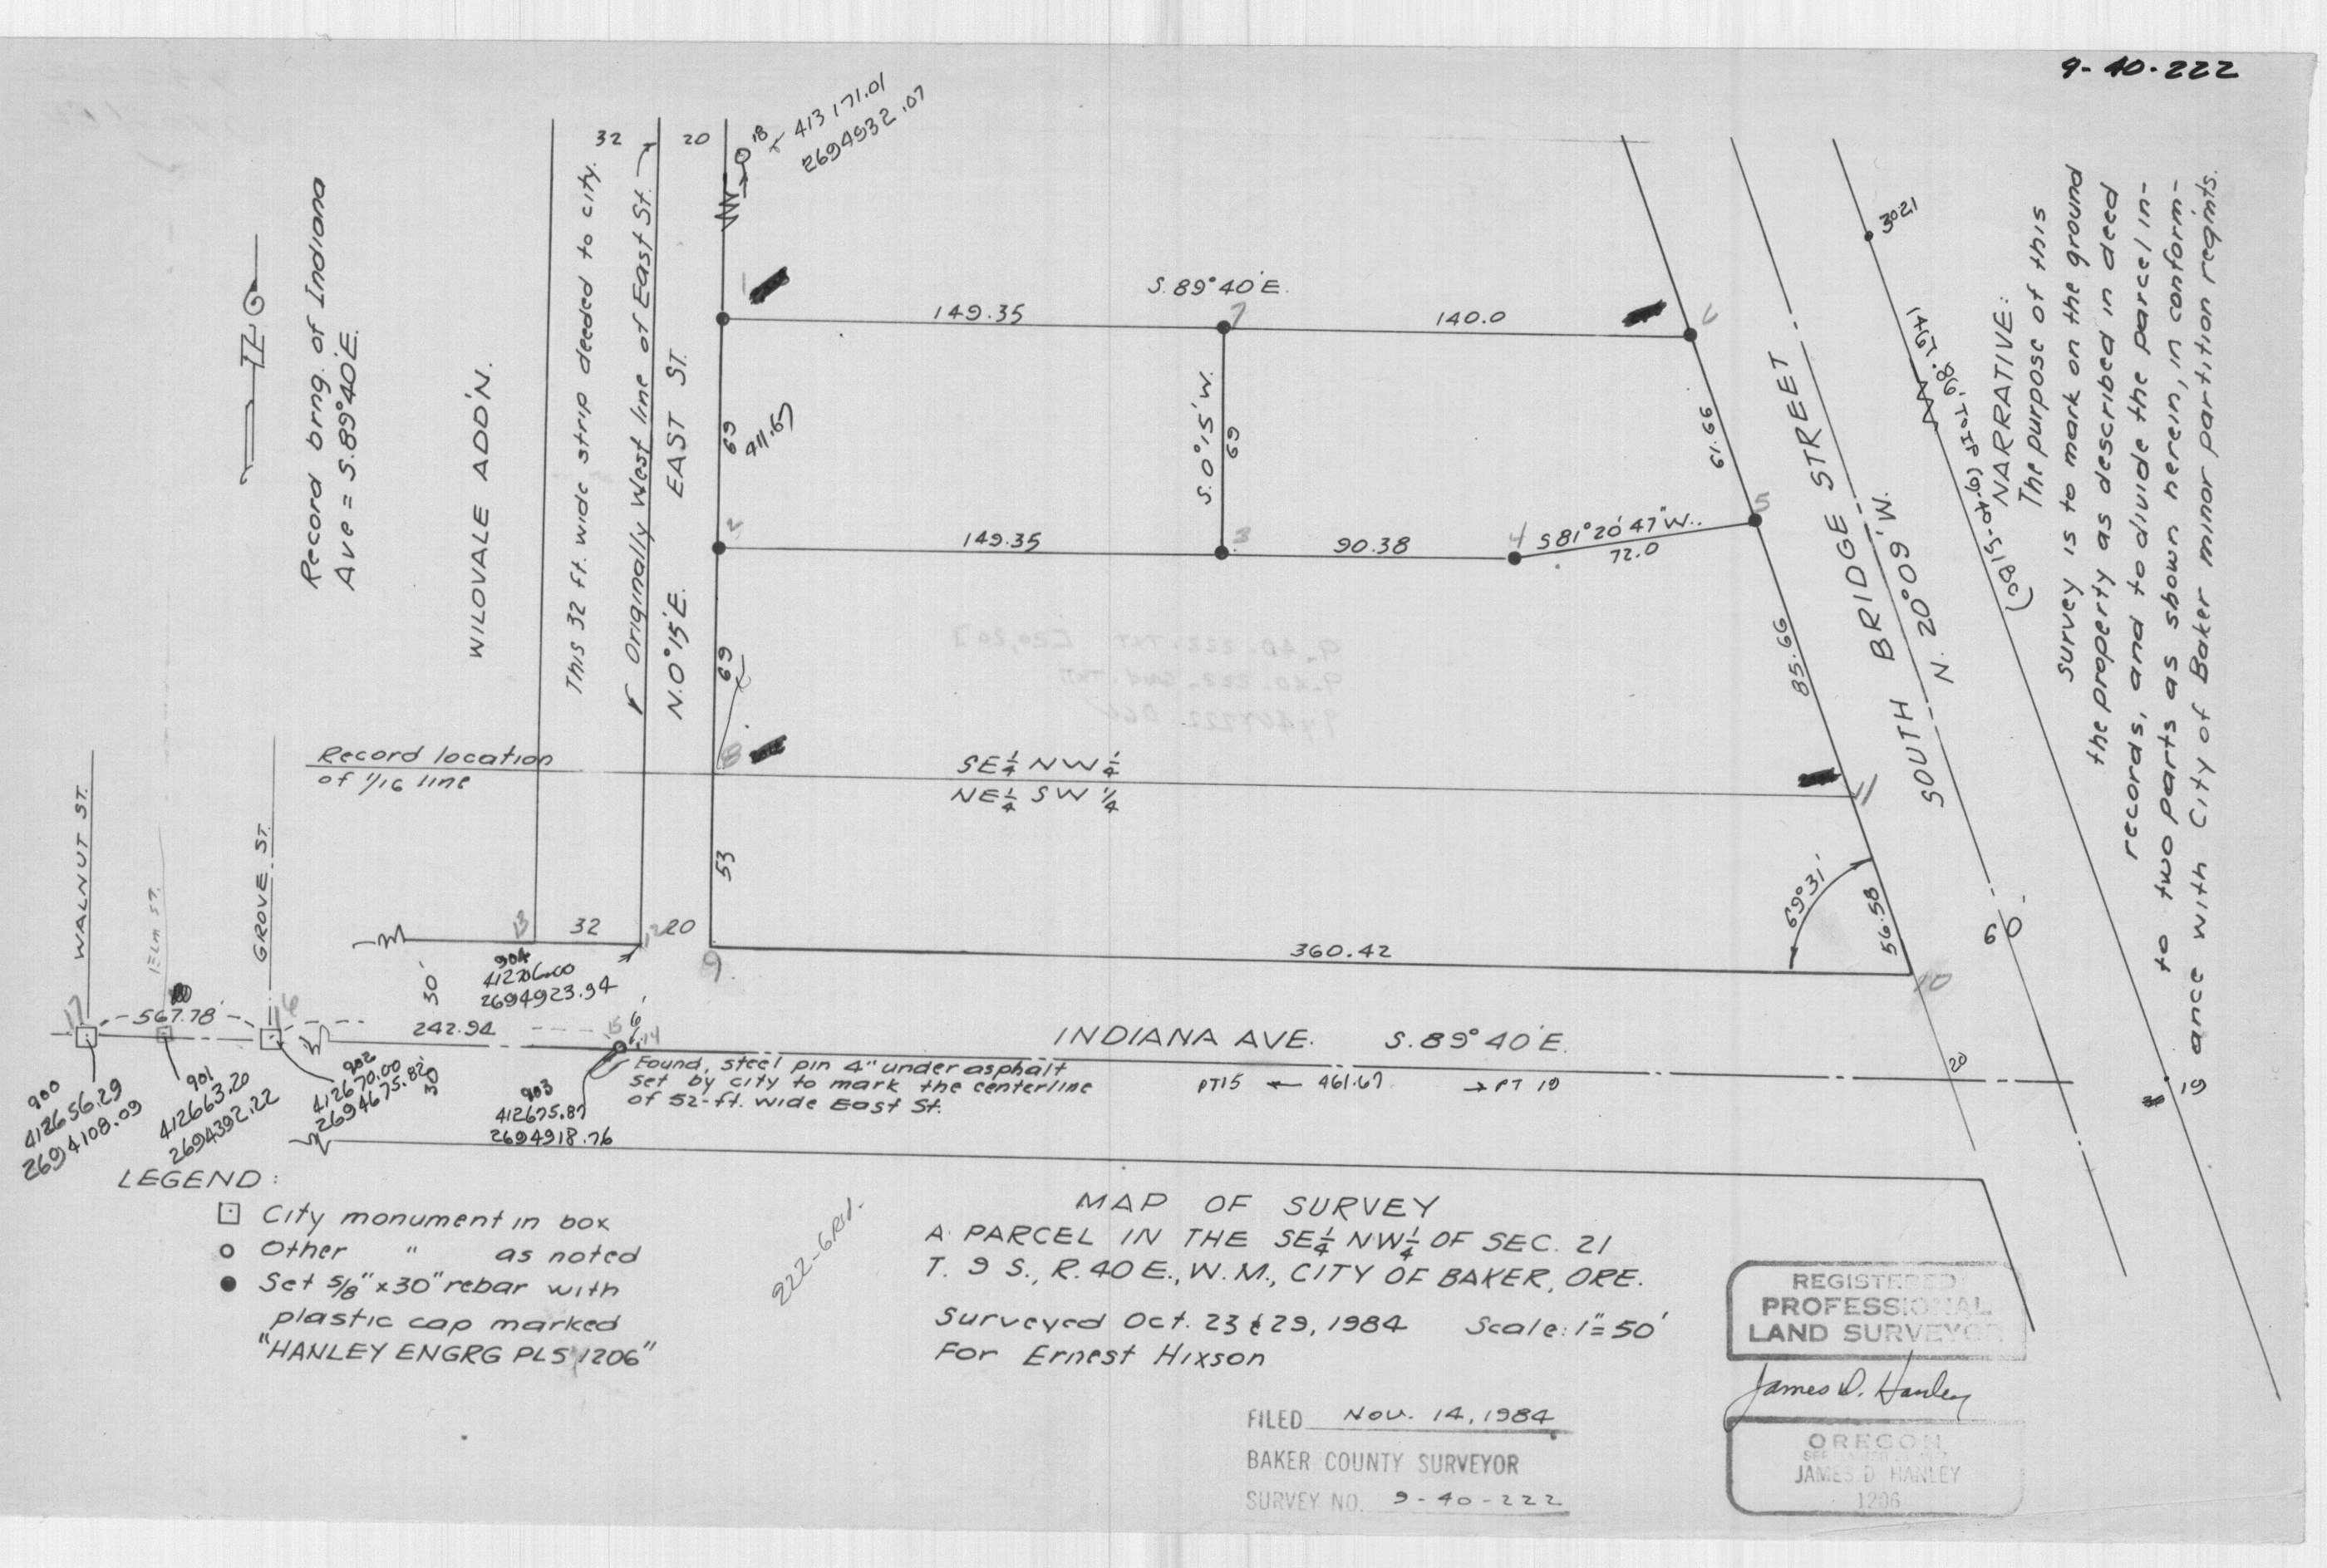 9-40-222
32
20
18
413171.01
2694932.07
Record brng. of Indiana
Ave = S.89°40'E.
WILOVALE ADD'N.
This 32 ft. wide strip deeded to city.
Originally West line of East St.
EAST ST.
N.0°15'E.
1
S.89°40'E.
149.35
7
140.0
69
411.67
S.0°15'W.
69
61.66
2
149.35
3
90.38
4
S81°20'47"W.
72.0
5
69
8
85.66
SOUTH BRIDGE STREET
N. 20°09'W.
3021
1497.98
NARRATIVE:
The purpose of this
survey is to mark on the ground
the property as described in deed
records, and to divide the parcel in-
to two parts as shown herein, in conform-
ance with City of Baker minor partition reqmts.
Record location
of 1/16 line
SE¼ NW¼
NE¼ SW ¼
11
53
69°31'
56.58
WALNUT ST.
ELM ST.
GROVE ST.
13
32
12
20
9
360.42
10
60
30'
904
2694923.94
17
567.78
16
242.94
15
14
6
INDIANA AVE. S.89°40'E.
20
19
Found, steel pin 4" under asphalt
set by city to mark the centerline
of 52-ft. wide East St.
PT15 ← 461.67 → PT 19
900
412656.29
2694108.09
901
412663.20
2694392.22
902
412670.00
2694675.82
30'
903
412675.87
2694918.76
LEGEND:
City monument in box
Other " as noted
Set 5/8" x 30" rebar with
plastic cap marked
"HANLEY ENGRG PLS 1206"
222-GRD.
MAP OF SURVEY
A PARCEL IN THE SE¼ NW¼ OF SEC. 21
T. 9 S., R. 40 E., W.M., CITY OF BAKER, ORE.
Surveyed Oct. 23 & 29, 1984 Scale: 1"=50'
For Ernest Hixson
FILED Nov. 14, 1984
BAKER COUNTY SURVEYOR
SURVEY NO. 9-40-222
REGISTERED
PROFESSIONAL
LAND SURVEYOR
James D. Hanley
OREGON
JAMES D. HANLEY
1206